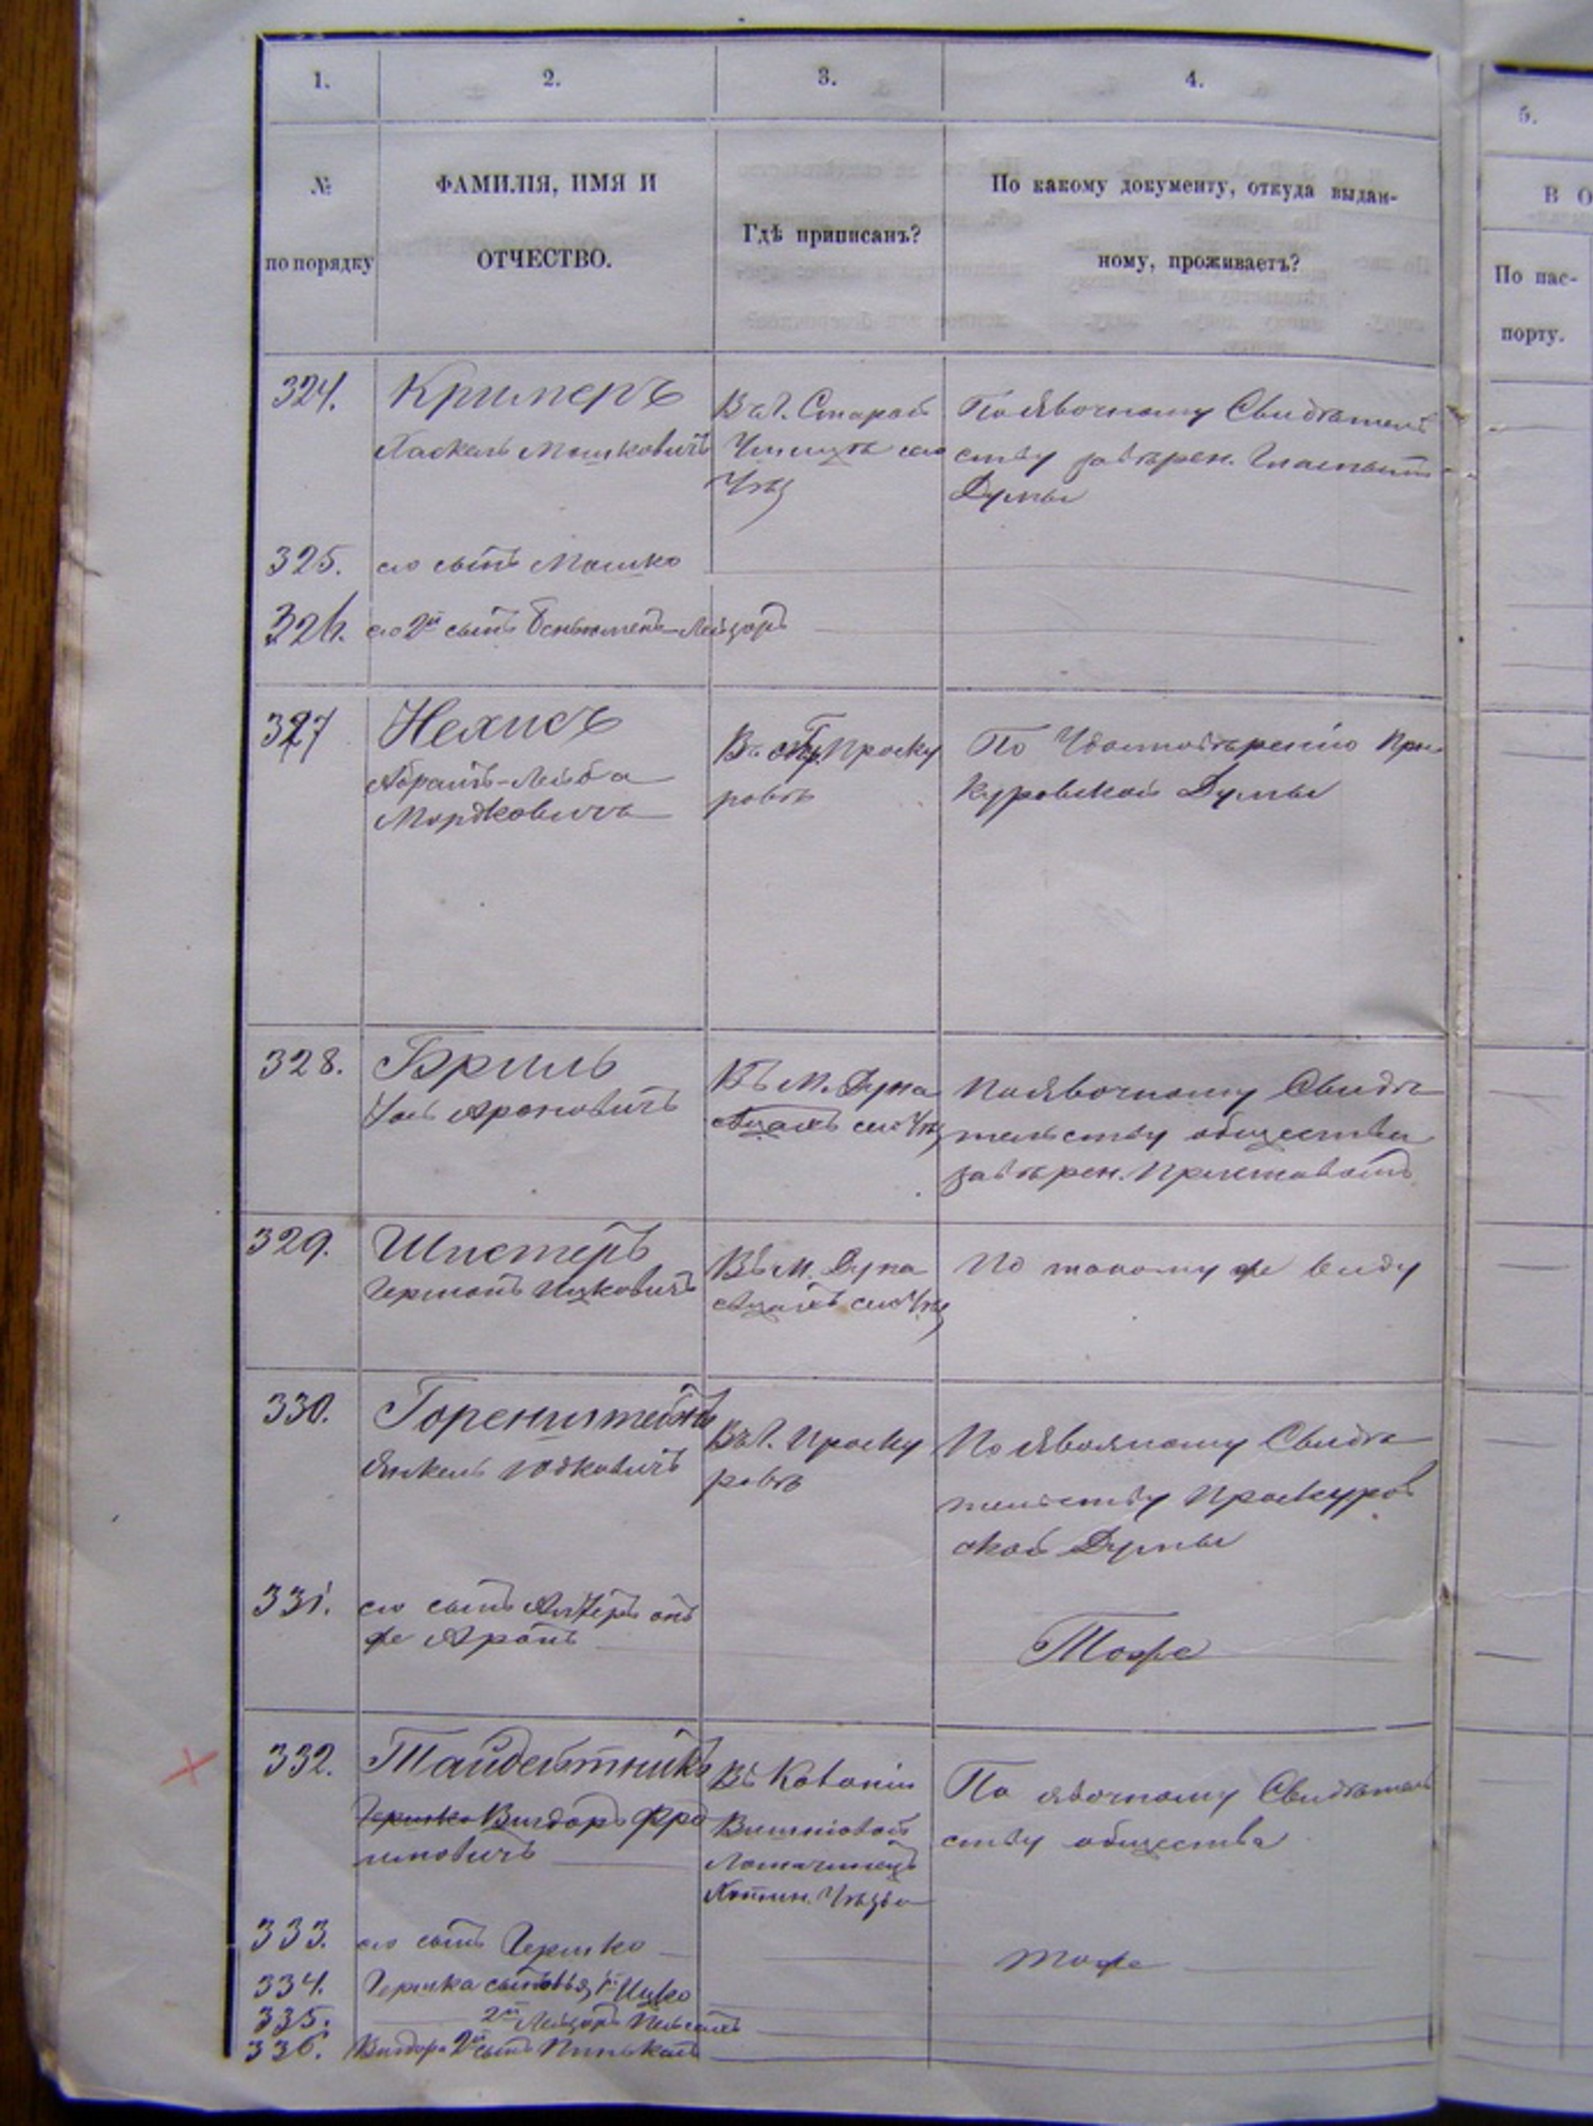 1. 2. 3. 4. 5.
№ по порядку
ФАМИЛІЯ, ИМЯ И
ОТЧЕСТВО.
Гдѣ приписанъ?
По какому документу, откуда выдан-
ному, проживаетъ?
В О
По пас-
порту.
324. Кримеръ
Хаскель Мошковичъ
Въ Г. Старой
По явочному Свидѣтель
ству завѣрен.
Думы
325. его сынъ Мошко
326. его 2й сынъ Беньюменъ-Лейзоръ
327 Нехисъ
Абрамъ-Лейба
Мордковичъ
Проску
ровѣ
По Удостовѣренію Прос
куровской Думы
328. Бриль
Ароновичъ
Въ М. Дуна
евцахъ сего Уѣз
По явочному Свидѣ
тельству общества
завѣрен. Приставомъ
329. Шпетеръ
Германъ Ицковичъ
Въ М. Дуна
евцахъ сего Уѣз
По такому же виду
330. Горенштейнъ
Янкель Юдковичъ
Въ Г. Проску
ровѣ
По явочному Свидѣ
тельству Проскуров
ской Думы
331. его сынъ Альтеръ онъ
же Аронъ
Тоже
332. Тайдейтникъ
Гершко Вигдоръ Фро
имовичъ
Въ Колоніи
Вашего
Хотин. Уѣзда
По явочному Свидѣтель
ству общества
333. его сынъ Гершко
тоже
334. Гершка сыновья, 1й Ицко
335. 2й Лейзоръ
336. Вигдора 2й сынъ Пинькасъ